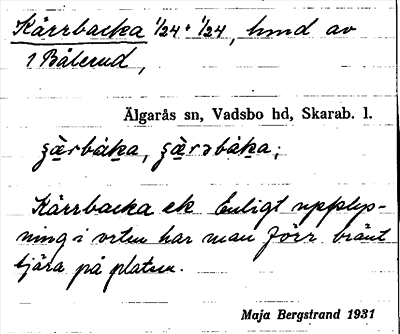 Kärrbacka 1/24 + 1/24, hmd av
1 Bålerud,
Älgarås sn, Vadsbo hd, Skarab. l.
Kärrbacka ek Enligt upplys-
ning i orten har man förr bränt
tjära på platsen.
Maja Bergstrand 1931